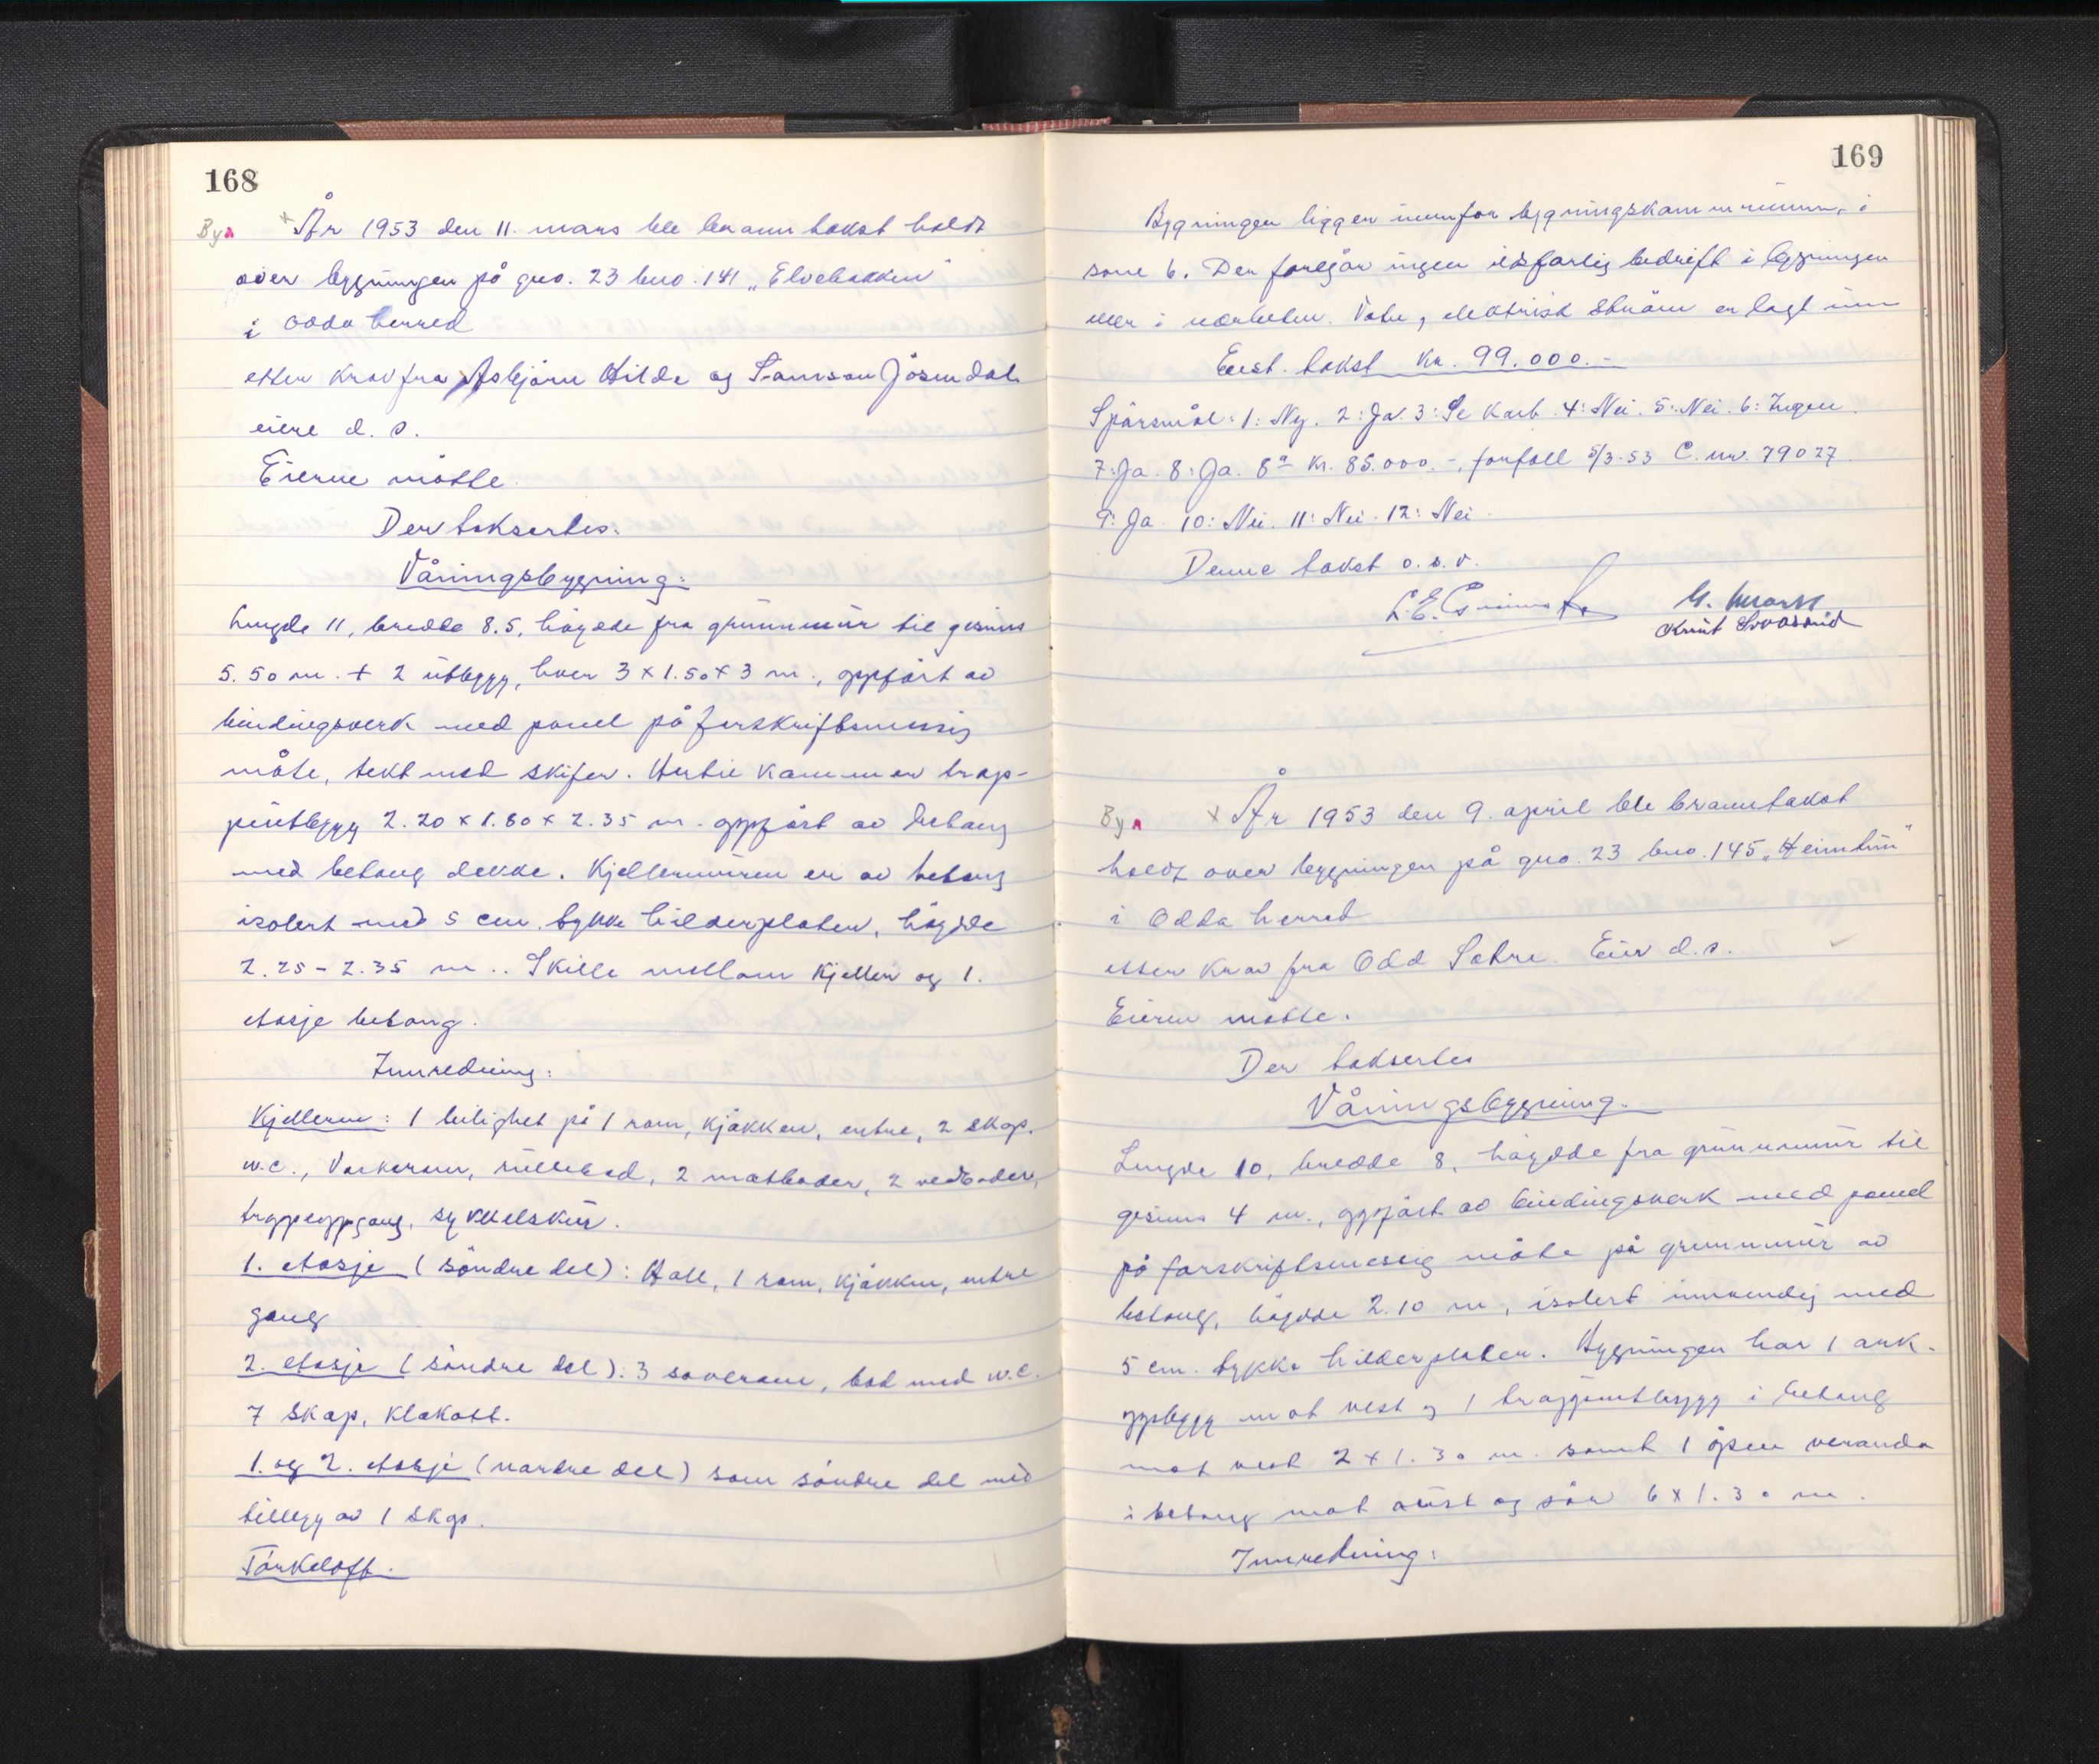 168
Bya × År 1953 den 11. mars ble branntakst holdt
over bygningen på gno. 23 bno. 141 „Elvebakken"
i Odda herred
etter krav fra Asbjörn Hilde og Samson Jösendal
eiere d. s.
Eierne mötte.
Der taksertes:
Våningsbygning:
Lengde 11, bredde 8.5, höyde fra grunnmur til gesims
5.50 m. + 2 utbygg, hver 3 x 1.50 x 3 m., oppfört av
bindingsverk med panel på forskriftsmessig
måte, tekt med skifer. Hertil kommer trap-
peutbygg 2.20 x 1.80 x 2.35 m. oppfört av betong
med betong dekke. Kjellermuren er av betong
isolert med 5 cm. tykke hilderplater, höyde
2.25 - 2.35 m.. Skille mellom kjeller og 1.
etasje betong.
Innredning:
Kjelleren: 1 leilighet på 1 rom, kjökken, entre, 2 skap.
w.c., Vaskerom, rullebod, 2 matboder, 2 vedboder,
trappeoppgang, sykkelskur.
1. etasje (söndre del): Hall, 1 rom, kjökken, entre
gang
2. etasje (söndre del): 3 soverom, bad med w.c.
7 skap, klekott.
1. og 2. etasje (nordre del) som söndre del med
tillegg av 1 skap.
Törkeloft.
169
Bygningen ligger innenfor bygningskommunen, i
sone 6. Der foregår ingen ildsfarlig bedrift i bygningen
eller i nærheten. Vatn, elektrisk ström er lagt inn
Eiest. takst kr. 99.000.-
Spörsmål: 1: Ny. 2: Ja. 3: Se kart. 4: Nei. 5: Nei. 6: Ingen.
7: Ja. 8: Ja. 8a kr. 85.000.-, forfall 5/3-53 C. nr. 79027.
9: Ja. 10: Nei. 11: Nei. 12: Nei.
Denne takst o.s.v.
Knut
Bya × År 1953 den 9. april ble branntakst
holdt over bygningen på gno. 23 bno. 145 „Heimtun"
i Odda herred
etter krav fra Odd Sætre. Eier d.s.
Eieren mötte.
Der taksertes
Våningsbygning.
Lengde 10, bredde 8, höyde fra grunnmur til
gesims 4 m., oppfört av bindingsverk med panel
på forskriftsmessig måte på grunnmur av
betong, höyde 2.10 m, isolert innvendig med
5 cm. tykke hilderplater. Bygningen har 1 ark-
oppbygg mot vest og 1 trappeutbygg i betong
mot vest 2 x 1.30 m. samt 1 åpen veranda
i betong mot aust og sör 6 x 1.30 m.
Innredning: